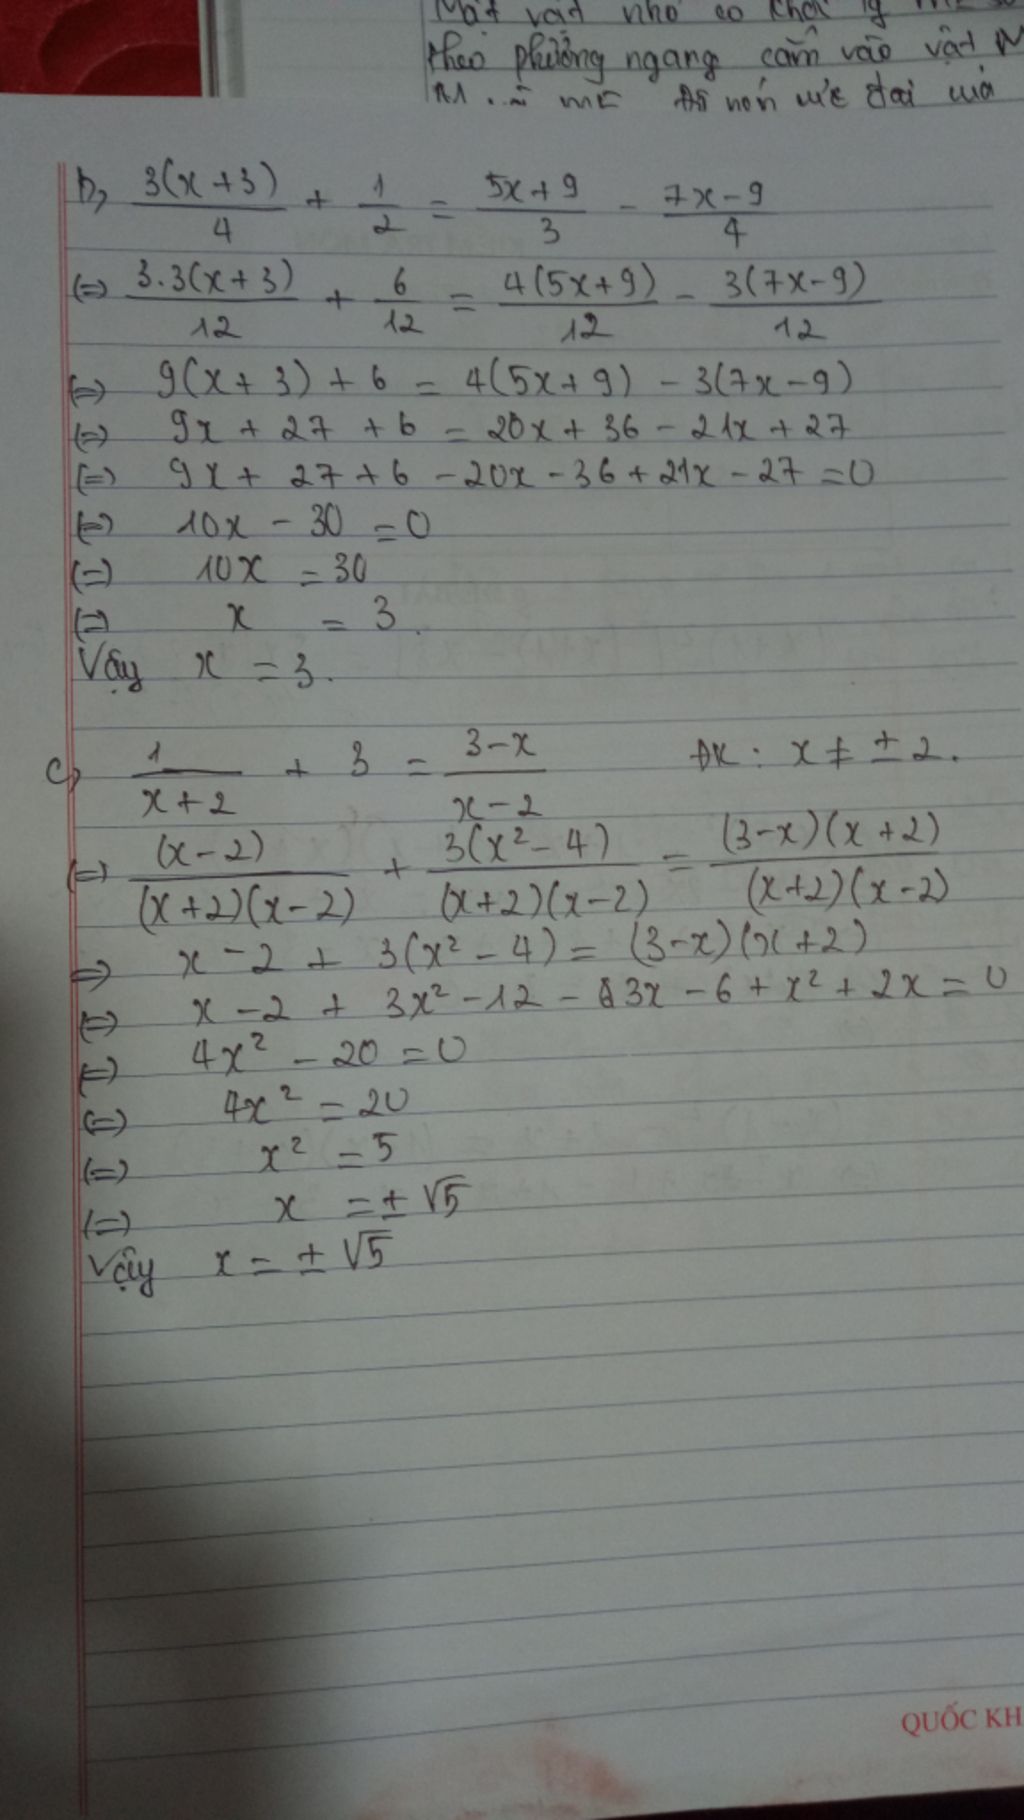 Một vật nhỏ có khối lg
theo phương ngang cắm vào vật M
M đó nén cực đại của
b, \frac{3(x+3)}{4} + \frac{1}{2} = \frac{5x+9}{3} - \frac{7x-9}{4}
(=) \frac{3.3(x+3)}{12} + \frac{6}{12} = \frac{4(5x+9)}{12} - \frac{3(7x-9)}{12}
(=) 9(x+3) + 6 = 4(5x+9) - 3(7x-9)
(=) 9x + 27 + 6 = 20x + 36 - 21x + 27
(=) 9x + 27 + 6 - 20x - 36 + 21x - 27 = 0
(=) 10x - 30 = 0
(=) 10x = 30
(=) x = 3.
Vậy x = 3.
c, \frac{1}{x+2} + 3 = \frac{3-x}{x-2} ĐK: x ≠ ± 2.
(=) \frac{(x-2)}{(x+2)(x-2)} + \frac{3(x²-4)}{(x+2)(x-2)} = \frac{(3-x)(x+2)}{(x+2)(x-2)}
=> x - 2 + 3(x² - 4) = (3-x)(x+2)
(=) x - 2 + 3x² - 12 - 3x - 6 + x² + 2x = 0
(=) 4x² - 20 = 0
(=) 4x² = 20
(=) x² = 5
(=) x = ± √5
Vậy x = ± √5
QUỐC KH